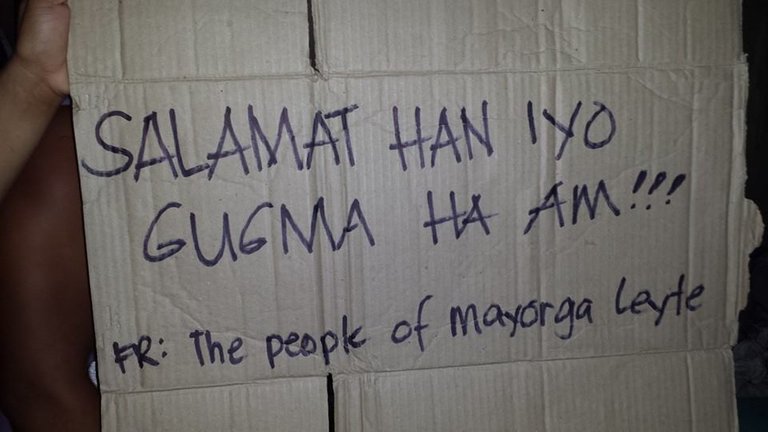 SALAMAT HAN IYO
GUGMA HA AM!!!
FR: The people of mayorga Leyte